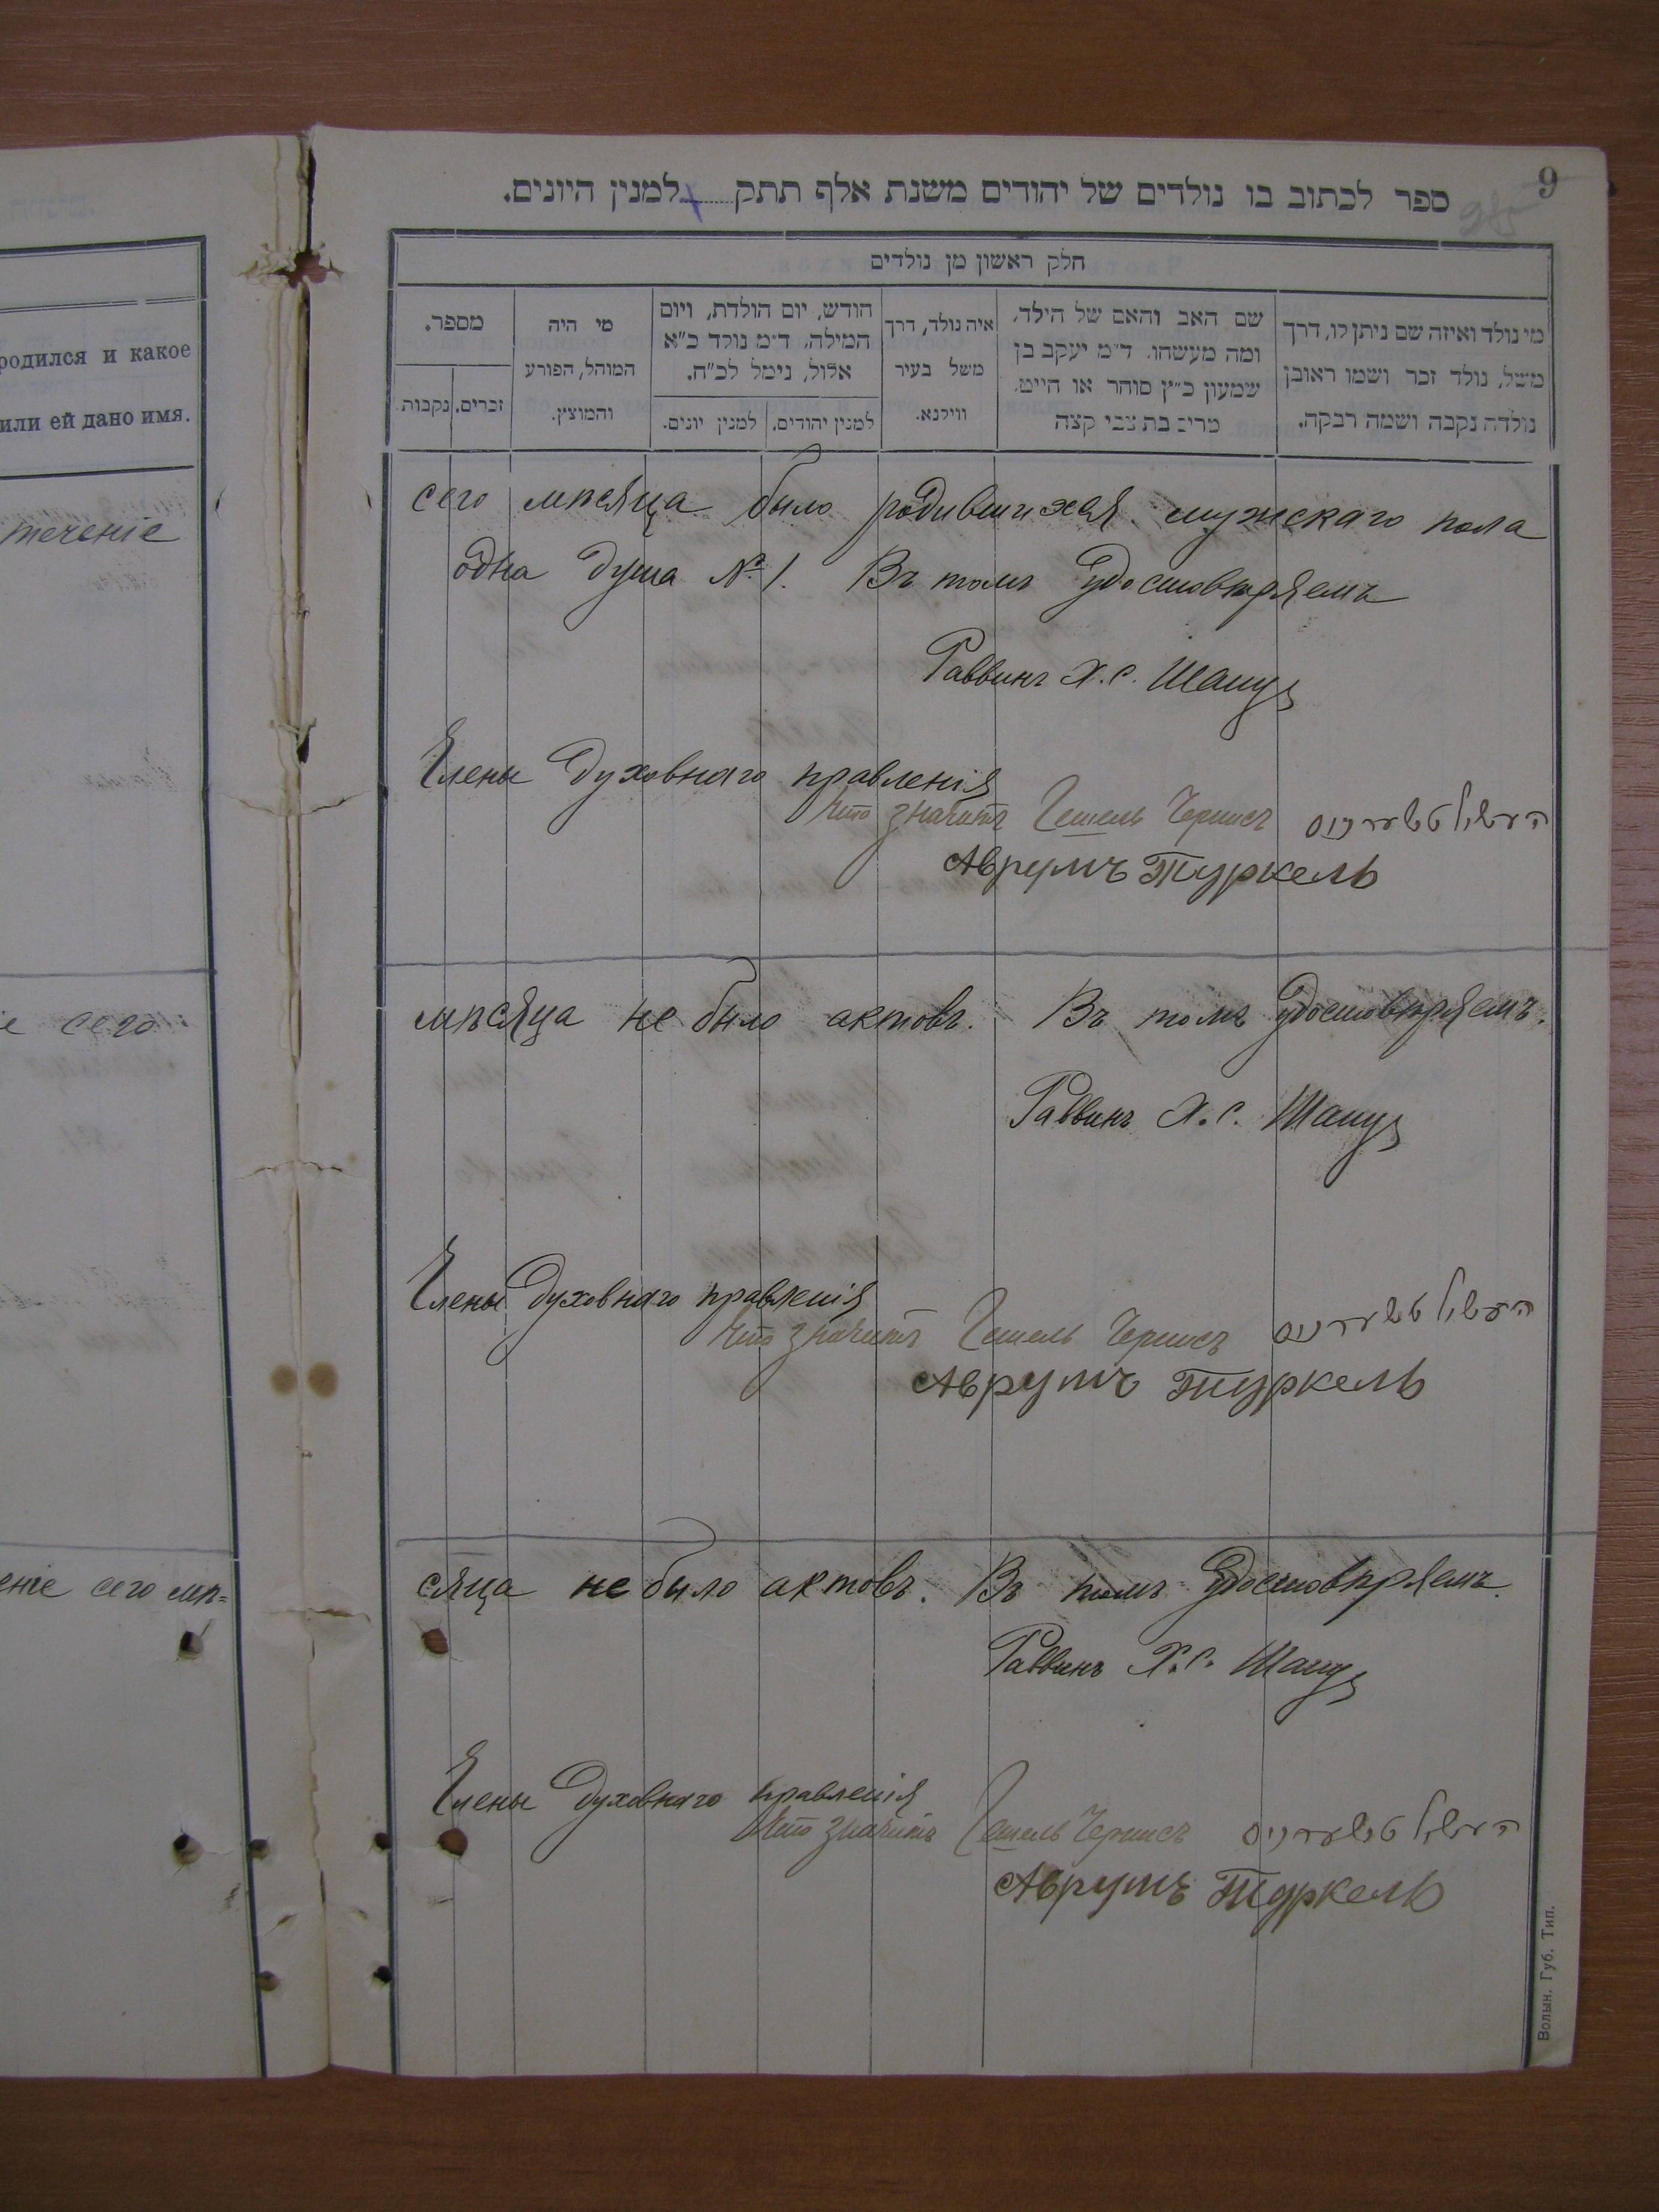 родился и какое
или ей дано имя.
теченіе
сего
еніе сего мѣ=
9
ספר לכתוב בו נולדים של יהודים משנת אלף תתק למנין היונים.
חלק ראשון מן נולדים
מי נולד ואיזה שם ניתן לו, דרך
משל, נולד זכר ושמו ראובן
נולדה נקבה ושמה רבקה.
שם האב והאם של הילד,
ומה מעשהו. ד״מ יעקב בן
שמעון כ״ץ סוחר או חייט,
מרים בת צבי קצה
איה נולד, דרך
משל בעיר
ווילנא.
הודש, יום הולדת, ויום
המילה, ד״מ נולד כ״א
אלול, נימל לכ״ח.
למנין יהודים.
למנין יונים.
מי היה
המוהל, הפורע
והמוצץ.
מספר.
זכרים.
נקבות.
сего мѣсяца было родившихся мужскаго пола
одна душа № 1. Въ томъ удостовѣряемъ
Раввинъ Х. С.
Члены духовнаго правленія
что значитъ Гешель Чернисъ העשיל טשערניס
Аврумъ Туркель
мѣсяца не было актовъ. Въ томъ удостовѣряемъ.
Раввинъ Х. С.
Члены духовнаго правленія
что значитъ Гешель Чернисъ העשיל טשערניס
Аврумъ Туркель
сяца не было актовъ. Въ томъ удостовѣряемъ.
Раввинъ Х. С.
Члены духовнаго правленія
что значитъ Гешель Чернисъ העשיל טשערניס
Аврумъ Туркель
Волын. Губ. Тип.